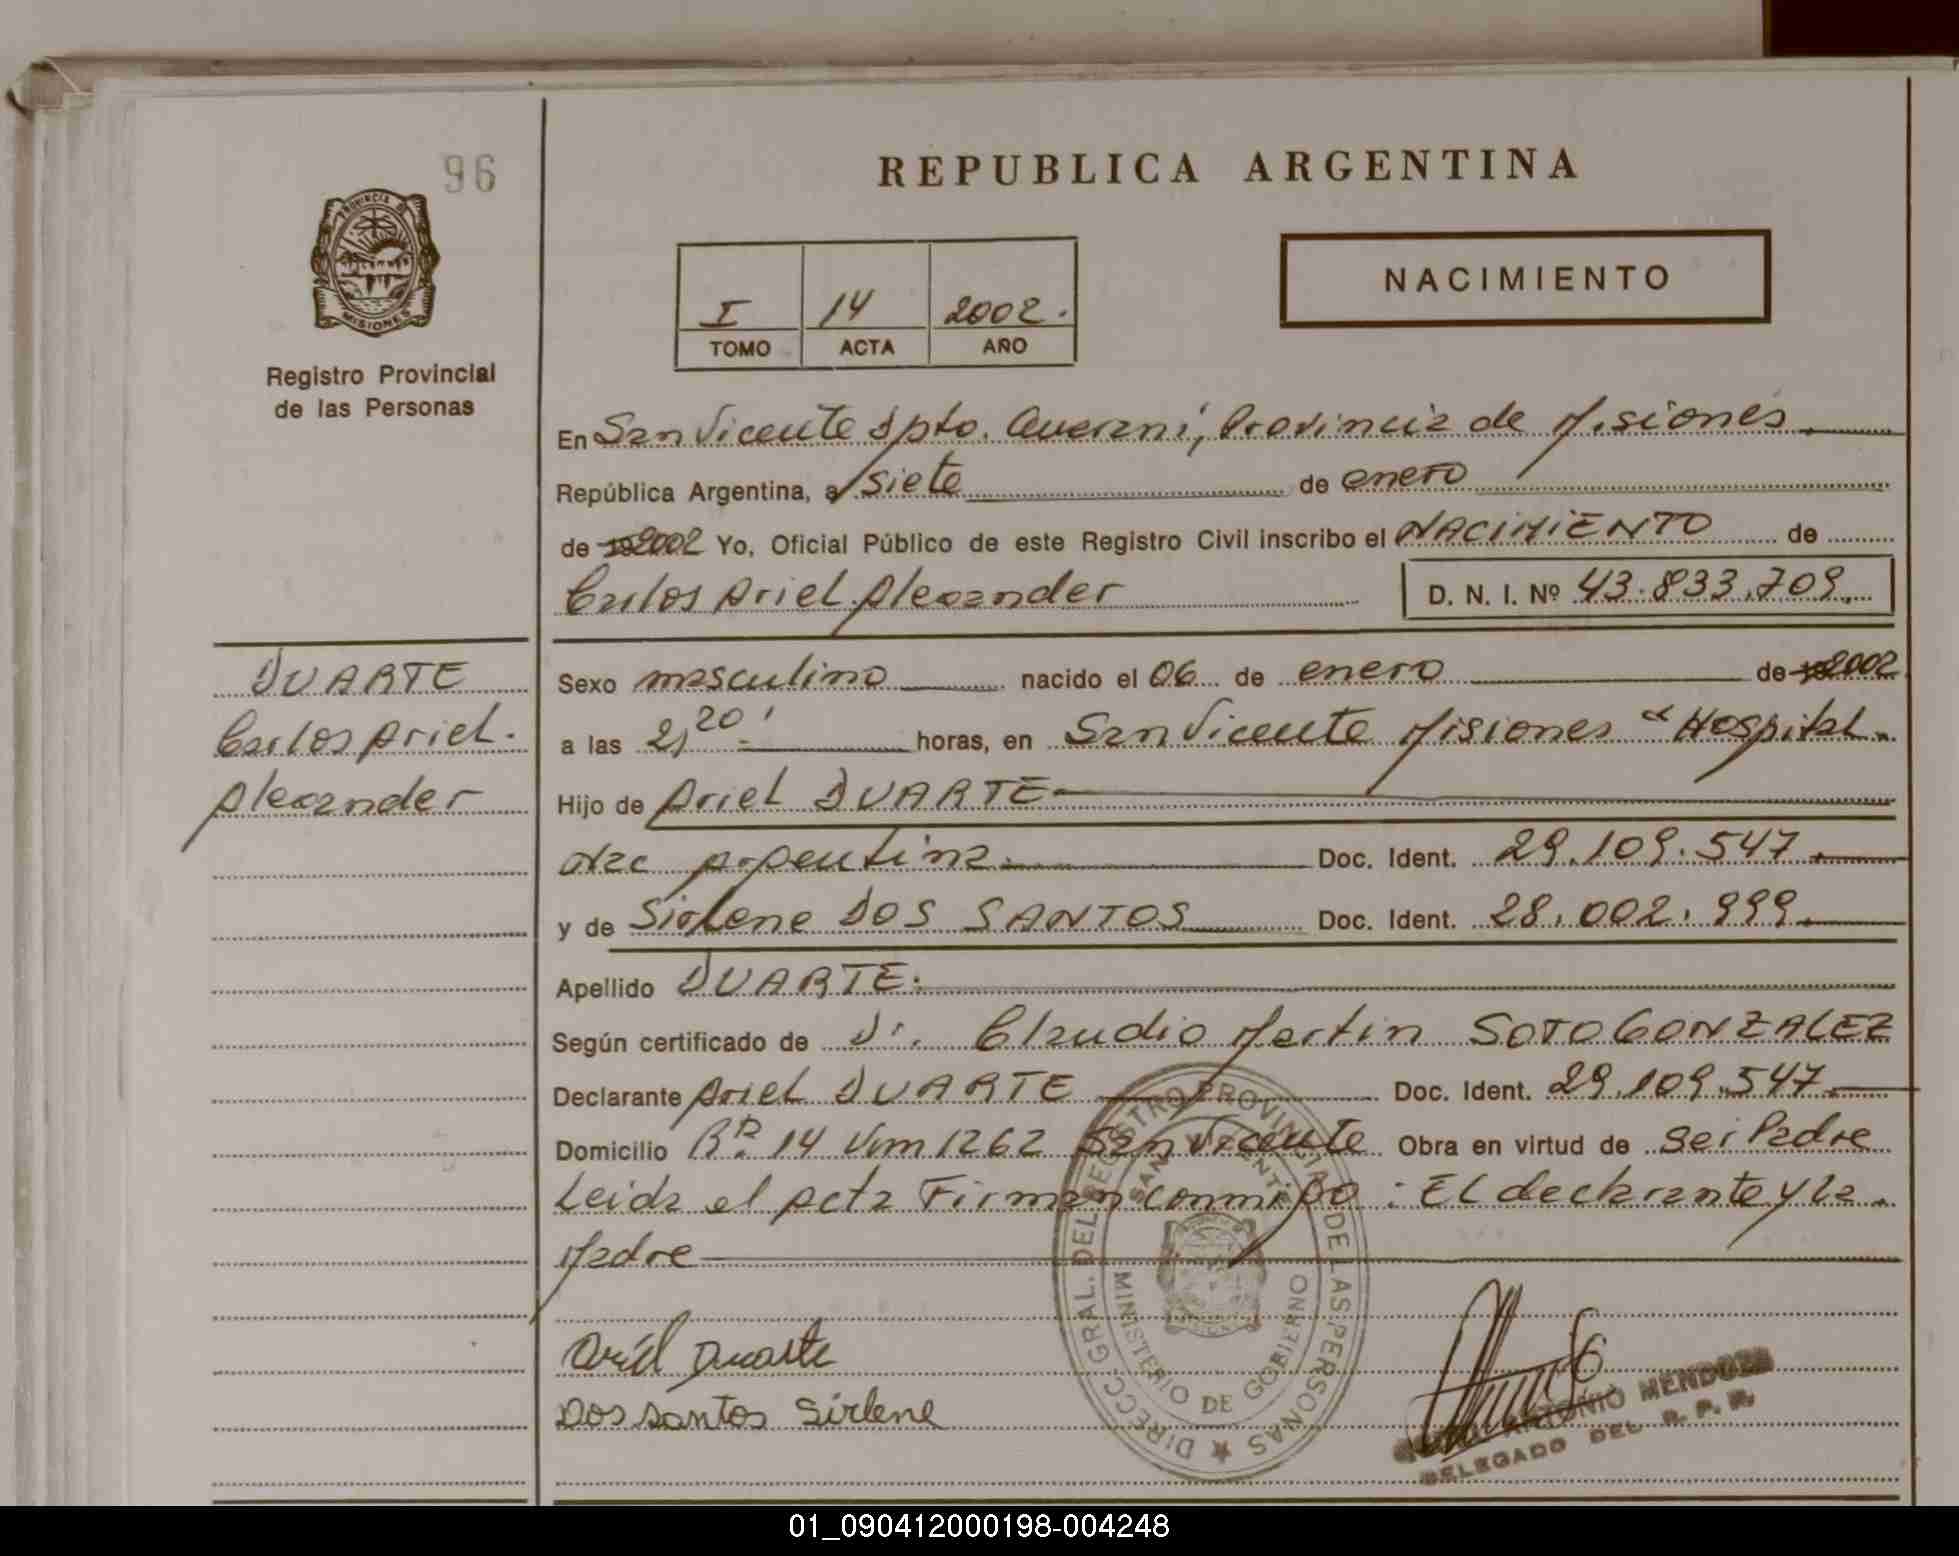 96
REPUBLICA ARGENTINA
PROVINCIA DE
MISIONES
Registro Provincial
de las Personas
NACIMIENTO
I 14 2002.
TOMO ACTA AÑO
En San Vicente Dpto. Guarani, Provincia de Misiones
República Argentina, a siete de enero
de 19 2002 Yo, Oficial Público de este Registro Civil inscribo el NACIMIENTO de
Carlos Ariel Alexander D. N. I. Nº 43.833.709.
DUARTE
Carlos Ariel.
Alexander
Sexo masculino nacido el 06 de enero de 19 2002
a las 2,20' horas, en San Vicente Misiones "Hospital
Hijo de Ariel DUARTE
Nac Argentina Doc. Ident. 29.109.547.
y de Sirlene DOS SANTOS Doc. Ident. 28.002.999.
Apellido DUARTE.
Según certificado de Dr. Claudio Martin SOTO GONZALEZ
Declarante Ariel DUARTE Doc. Ident. 29.109.547.
Domicilio 14 1262 San Vicente Obra en virtud de ser Padre
Leida el acta Firman conmigo: El declarante y la
Madre
Ariel Duarte
Dos santos Sirlene
DIRECC. GRAL. DEL REGISTRO PROVINCIAL DE LAS PERSONAS
SAN VICENTE
MINISTERIO DE GOBIERNO
ANTONIO MENDOZA
DELEGADO DEL R. P. P.
01_090412000198-004248